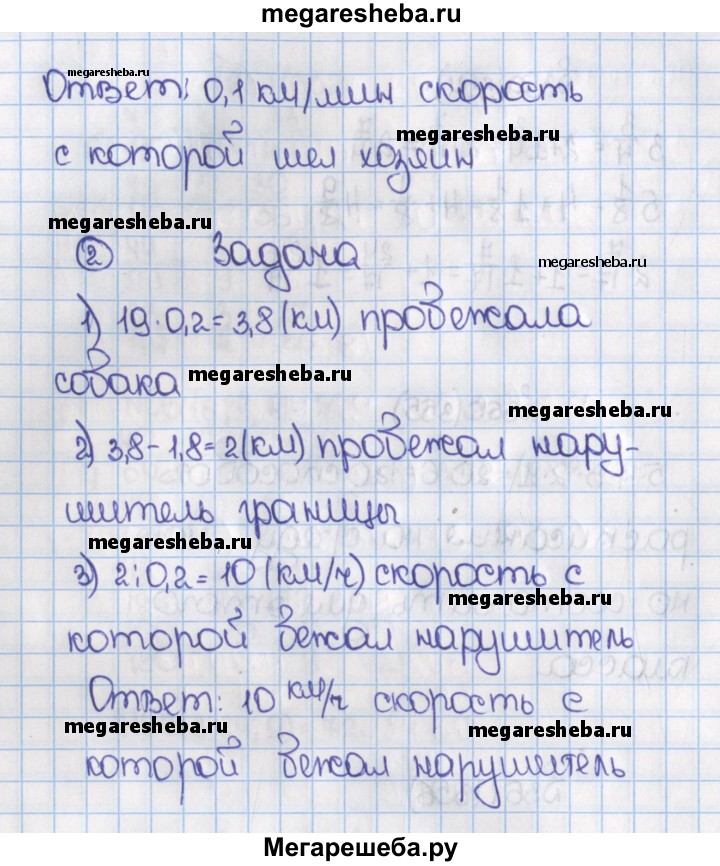 megaresheba.ru
megaresheba.ru
Ответ: 0,1 км/мин скорость
megaresheba.ru
с которой шел хозяин
megaresheba.ru
② Задача
megaresheba.ru
1) 19·0,2=3,8(км) пробежала
собака
megaresheba.ru
megaresheba.ru
2) 3,8-1,8=2(км) пробежал нару-
шитель границы
megaresheba.ru
3) 2:0,2=10(км/ч) скорость с
megaresheba.ru
которой бежал нарушитель
Ответ: 10 км/ч скорость с
megaresheba.ru
megaresheba.ru
которой бежал нарушитель
Мегарешеба.ру